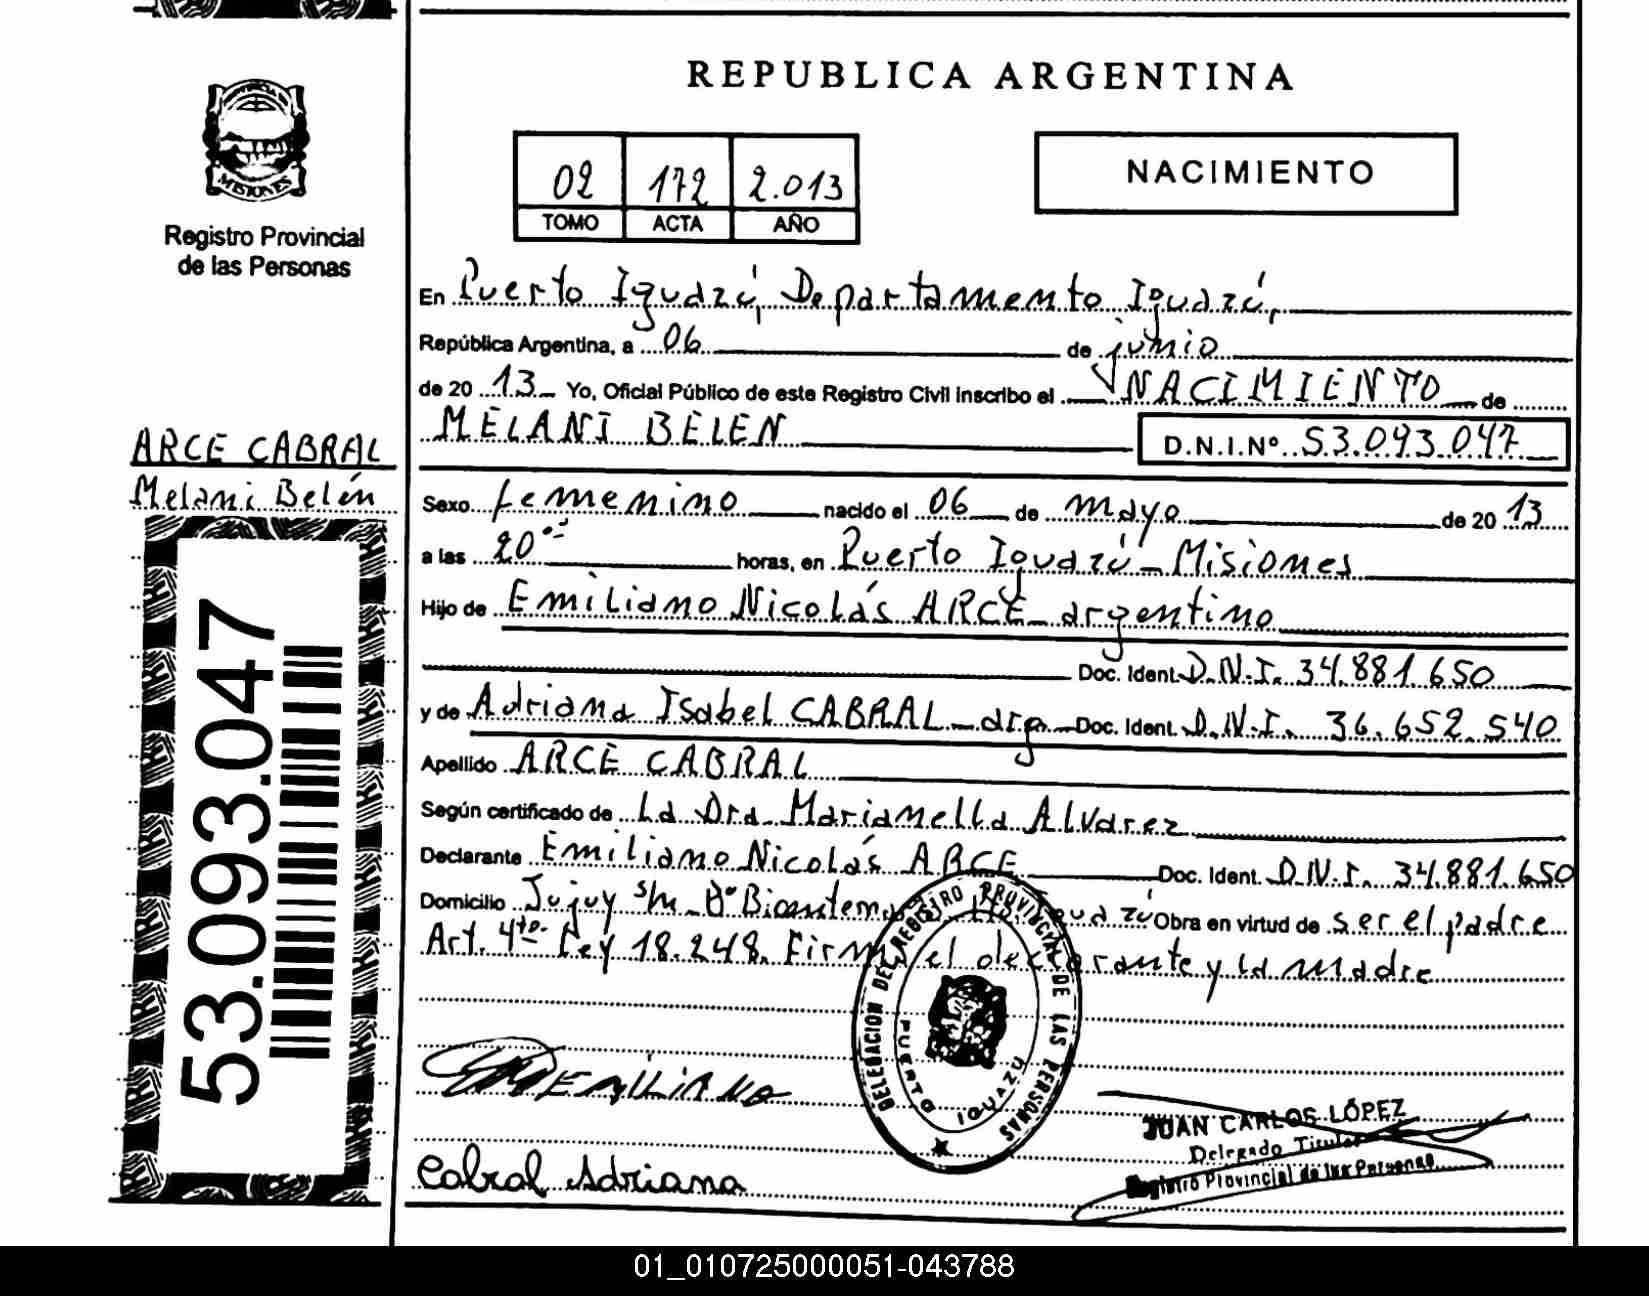 REPUBLICA ARGENTINA
PROVINCIA DE
MISIONES
Registro Provincial
de las Personas
02 172 2.013
TOMO ACTA AÑO
NACIMIENTO
En Puerto Iguazú, Departamento Iguazú,
República Argentina, a 06 de junio
de 20 13 Yo, Oficial Público de este Registro Civil inscribo el NACIMIENTO de
MELANI BELEN D.N.I.Nº 53.093.047
ARCE CABRAL
Melani Belén
53.093.047
Sexo femenino nacido el 06 de mayo de 20 13
a las 20 horas, en Puerto Iguazú - Misiones
Hijo de Emiliano Nicolás ARCE argentino
Doc. Ident. D.N.I. 34.881.650
y de Adriana Isabel CABRAL - arg Doc. Ident. D.N.I. 36.652.540
Apellido ARCE CABRAL
Según certificado de La Dra. Marianella Alvarez
Declarante Emiliano Nicolás ARCE Doc. Ident. D.N.I. 34.881.650
Domicilio Jujuy s/n Bº Iguazú Obra en virtud de ser el padre
Art. 4to. Ley 18.248. Firman el declarante y la madre
DELEGACION DEL REGISTRO PROVINCIAL DE LAS PERSONAS
PUERTO IGUAZU
EMILIANO
Cabral Adriana
JUAN CARLOS LÓPEZ
Delegado Titular
Registro Provincial de las Personas
01_010725000051-043788